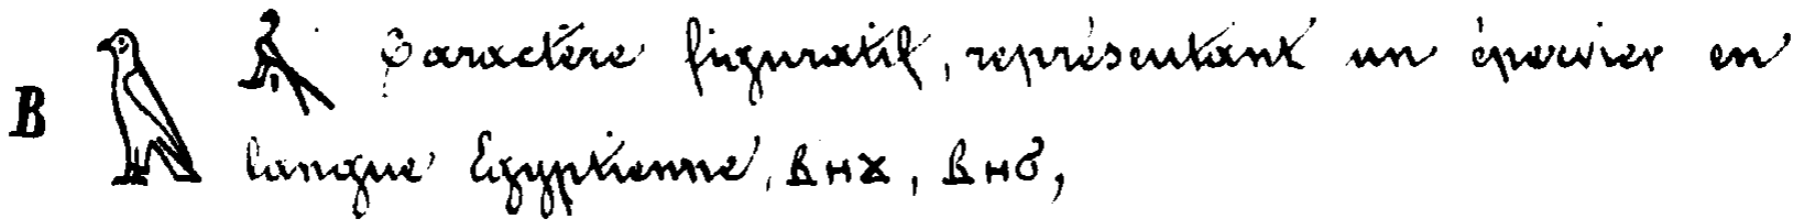 B
Caractère figuratif, représentant un épervier en
langue Egyptienne, ⲃⲏϫ, ⲃⲏϭ,